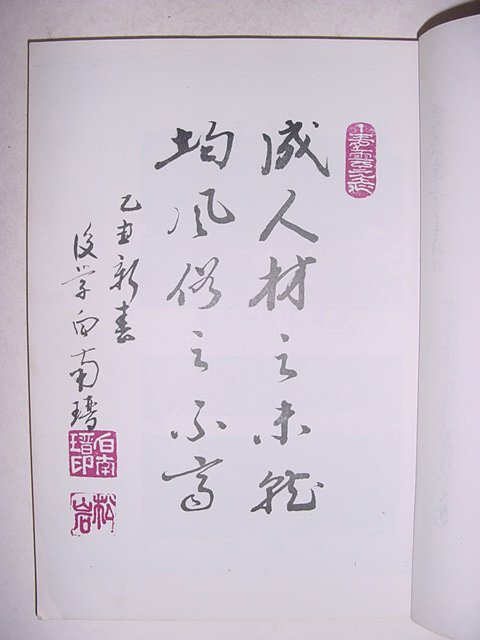 成人材之未就
均風俗之不齊
乙丑新春
後學白南瑨
白南瑨印
松岩